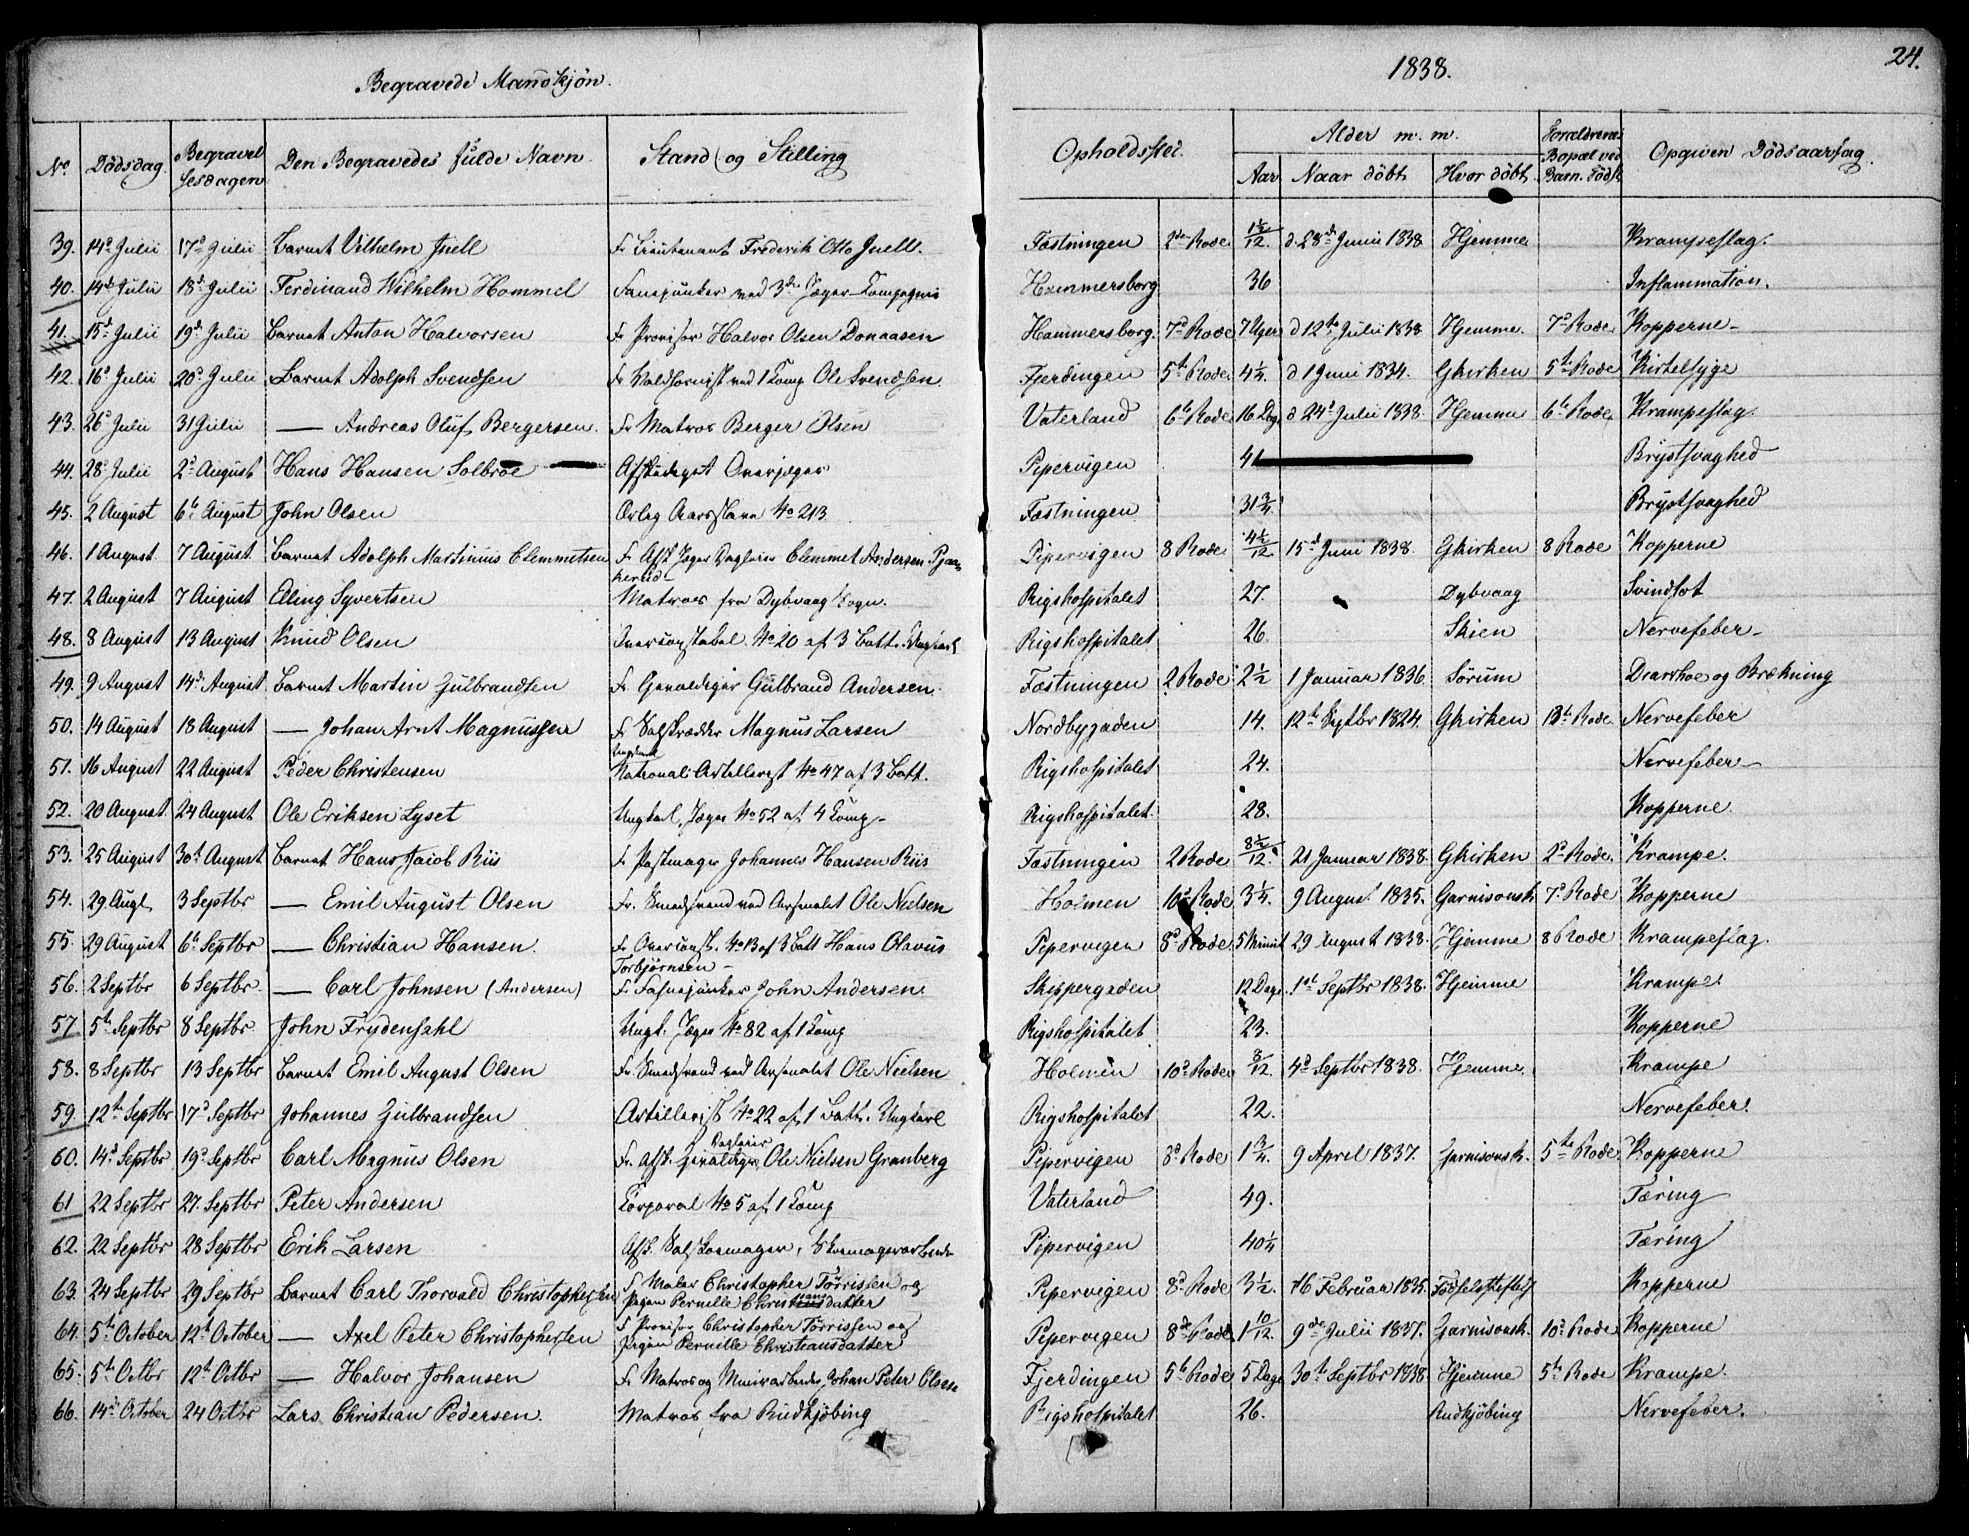 24.
Begravede Mandkjøn. 1838.
No. Dödsdag. Begravelsesdagen Den Begravedes fulde Navn. Stand og Stilling Opholdssted. Alder m. m. Aar Naar döbt. Hvor döbt. Forældrenes Bopæl ved Barn. Föds. Opgiven Dödsaarsag.
39. 14d Julii 17d Julii Barnet Vilhelm Juell F. Lieutenant Frederik Otto Juell. Fæstningen 2de Rode 1½/12. d. 28de Junii 1838 Hjemme Krampeslag.
40. 14d Julii 18d Julii Ferdinand Wilhelm Hommel Fanejunker ved 3die Jæger-Compagnie Hammersborg 36 Inflammation.
41. 15d Julii 19d Julii Barnet Anton Halvorsen F. Provisor Halvor Olsen Donaasen Hammersborg. 7d Rode 7 Uger d 12te Julii 1838 Hjemme. 7d Rode Kopperne
42. 16d Julii 20d Julii Barnet Adolph Svendsen F. Valdhornist ved 1 Comp Ole Svendsen Fjerdingen 5te Rode. 4¼. d 1 Juni 1834. Gkirken 5te Rode Kirtelsyge
43. 26d Julii 31 Julii — Andreas Oluf Bergersen. F. Matros Berger Olsen Vaterland 6te Rode 16 Dage d 24d Julii 1838. Hjemme 6te Rode. Krampeslag.
44. 28d Julii 2d August Hans Hansen Solbroe Afskediget Overjæger Pipervigen 41 Brÿstsvaghed
45. 2 August 6te August John Olsen Ærlig Aarsslave No 213 Fæstningen 31¾ Brÿstsvaghed
46. 1 August. 7 August. Barnet Adolph Martinius Clemmetsen F. Afsk. Jæger Dagleier Clemmet Andersen Pjaakerud Pipervigen 8 Rode. 4½/12 15d Juni 1838. Gkirken 8 Rode Kopperne
47. 2 August 7 August Elling Syvertsen Matros fra Dybvaag Sogn. Rigshospitalet 27. Dybvaag Svindsot
48. 8 August 13 August Knud Olsen Overconstabel No 20 af 3 Batt. Ungkarl Rigshospitalet 26 Skien Nervefeber
49. 9 August 14de August. Barnet Martin Gulbrandsen F. Gevaldiger Gulbrand Andersen. Fæstningen 2 Rode 2½ 1 Januar 1836. Sörum Diarrhoe og Brækning
50. 14 August 18 August — Johan Arnt Magnussen F. Salskrædder Magnus Larsen Nordbygaden 14. 12te Septbr 1824. Gkirken 13te Rode. Nervefeber
51. 16 August 22 August Peder Christensen Ungkarl National: Artillerist No 47 af 3 Batt. Rigshospitalet 24. Nervefeber
52. 20 August. 24 August Ole Eriksen Lyset Ungkarl, Jæger No 52 af 4 Comp Rigshospitalet. 28. Kopperne.
53. 25 August 30te August Barnet Hans Jacob Riis F. Postmager Johannes Hansen Riis Fæstningen 2 Rode 8½/12. 21 Januar 1838. Gkirken 2d Rode. Krampe.
54. 29. Augt. 3 Septbr — Emil August Olsen F. Smedsvend ved Arsenalet Ole Nielsen Holmen 10d Rode 3¼. 9 August 1835. Garnisonsk. 7d Rode Kopperne
55. 29 August 6te Septbr — Christian Hansen. F. Overconst. No 13 af 3 Batt Hans Olavus Torbjörnsen Pipervigen 8d Rode. 5 Minut 29 August 1838. Hjemme 8 Rode Krampeslag.
56. 2 Septbr 6 Septbr. — Carl Johnsen (Andersen) F. Fanejunker John Andersen. Skippergaden 12 Dage. 1st Septbr 1838. Hjemme Krampe.
57 5te Septbr 8 Septbr. John Frydendahl Ungk. Jæger No 82 af 1 Comp Rigshospitalet 23. Kopperne
58. 8 Septbr 13 Septbr Barnet Emil August Olsen F. Smedsvend ved Arsenalet Ole Nielsen Holmen 10d Rode 3/12. 4d Septbr 1838. Hjemme. Krampe
59. 12te Septbr 17d Septbr Johannes Gulbrandsen Artillerist No 22 af 1 Batt. Ungkarl Rigshospitalet 22. Nervefeber.
60. 14d Septbr 19d Septbr Carl Magnus Olsen F. Afsk. Gevaldiger Dagleier Ole Nielsen Granberg Pipervigen 8d Rode 1¾. 9 April 1837. Garnisonsk. 5te Rode. Kopperne
61 22 Septbr 27. Septbr Peter Andersen Corporal No 5 af 1 Comp Vaterland 49. Tæring
62. 22 Septbr 28 Septbr Erik Larsen Afsk. Salskomager, Skomagerarbeide Pipervigen 40¼ Tæring
63. 24 Septbr 29 Septbr Barnet Carl Thorvald Christophersen F. Maler Christopher Törrissen og Pigen Pernille Christiansdatter Pipervigen 8d Rode 3½. 16 Februar 1835. Födselsstiftels. Kopperne
64. 5te October 12te October — Axel Peter Christophersen F. Provisor Christopher Törrissen og Pigen Pernille Christiansdatter Pipervigen 8de Rode 1 10/12. 9de Julii 1837. Garnisonsk. 10d Rode. Kopperne
65. 5te Octbr 12te Octbr — Halvor Johansen F. Matros og Minerarbeider Johan Peter Olsen Fjerdingen 5te Rode 5 Dage 30te Septbr 1838 Hjemme 5te Rode Krampe.
66. 14d October 24 Octbr Lars Christian Pedersen. Matros fra Rudkjöbing Rigshospitalet 26. Rudkjöbing Nervefeber.